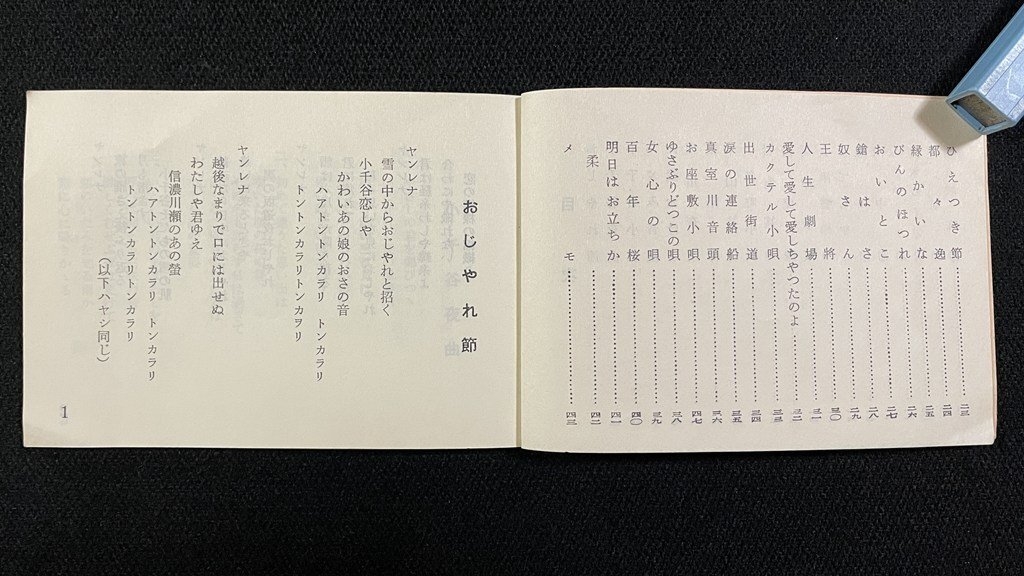 ひえつき節…………二三
都々逸…………二四
縁かいな…………二五
びんのほつれ…………二六
おいとこ…………二七
鎗はさ…………二八
奴さん…………二九
王將…………三〇
人生劇場…………三一
愛して愛して愛しちやつたのよ…………三二
カクテル小唄…………三三
出世街道…………三四
涙の連絡船…………三五
真室川音頭…………三六
お座敷小唄…………四七
ゆさぶりどつこの唄…………三八
女心の唄…………三九
百年小桜…………四〇
明日はお立ちか…………四一
柔…………四二
メモ…………四三
おじやれ節
ヤンレナ
雪の中からおじやれと招く
小千谷恋しや
かわいあの娘のおさの音
ハアトントンカラリ トンカラリ
トントンカラリトンカヲリ
ヤンレナ
越後なまりで口には出せぬ
わたしや君ゆえ
信濃川瀬のあの螢
ハアトントンカラリ トンカラリ
トントンカラリトンカラリ
(以下ハヤシ同じ)
1